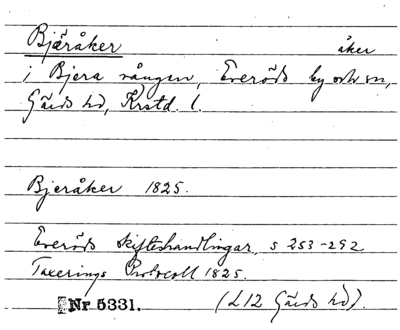 Bjäråker åker
i Bjera vången, Everöds by och sn,
Gärds hd, Krstd. l.
Bjeråker 1825.
Everöds Skifteshandlingar, s 253-292
Taxerings Protocoll 1825.
Nr 5331. (L12 Gärds hd).